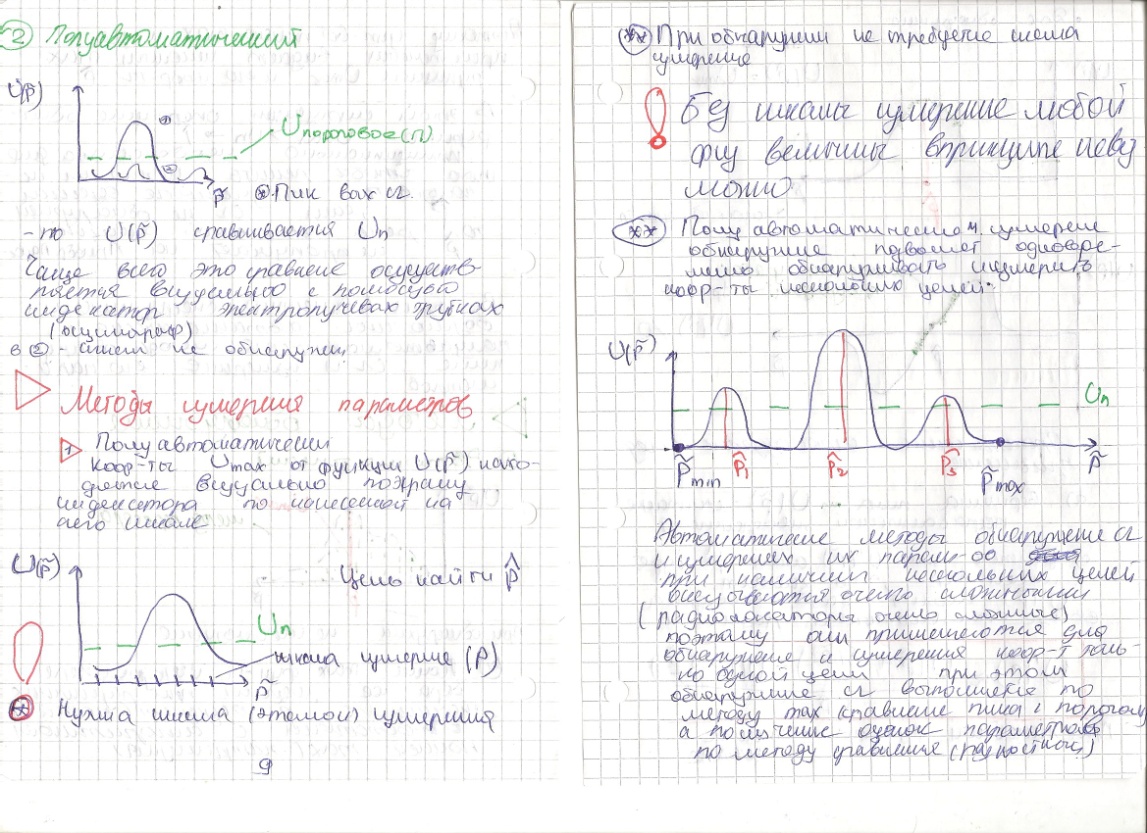 ② Полуавтоматический
U(p̃)
Uпороговое(П)
p̃
⊛ Пик вых сг.
- по U(p̃) сравнивается Uп
Чаще всего это сравнение осуществ-
ляется визуально с помощью
индикатор электролучевах трубках
(осцилограф)
в ② - не обнаружен
Методы измерения параметров
1 Полуавтоматически
Коор-ты Umax от функции U(p̃) нахо-
дятся визуально по экрану
индикатора по нанесенной на
него шкале
U(p̃)
Цель найти p̂
Uп
шкала измерение (p)
p̃
⊛ Нужна шкала (эталон) измерения
9
** При обнаружении не требуется шкала
измерение
! Без шкалы измерение любой
физ величины впринципе невоз
можно
** Полу автоматические измерение
обнаружение позволяет одновре-
менно обнаруживать и измерить
коор-ты несколько целей.
U(p̃)
Uп
p̃min p̃1 p̃2 p̃3 p̃max p̃
Автоматические методы обнаружение сг
и измерениях их парам-ов
при наличии нескольких целей
очень сложными
(радиолокаторы очень сложные)
поэтому они применяются для
обнаружение и измерения коор-т толь-
ко одной цели при этом
обнаружение сг выполняется по
методу max сравнение пика с порогом
а получение оценок параметров
по методу сравнения (разностного)